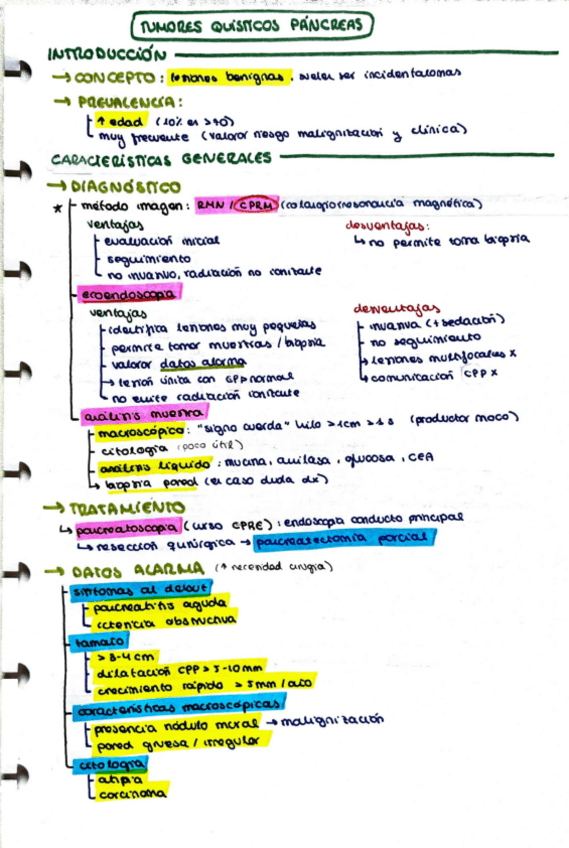 TUMORES QUÍSTICOS PÁNCREAS
INTRODUCCIÓN
→ CONCEPTO: lesiones benignas. suelen ser incidentalomas
→ PREVALENCIA:
↑ edad (10% en >70)
muy frecuente (valorar riesgo malignización y clínica)
CARACTERÍSTICAS GENERALES
→ DIAGNÓSTICO
* método imagen: RMN / CPRM (colangioresonancia magnética)
ventajas
evaluación inicial
seguimiento
no invasivo, radiación no ionizante
desventajas:
↳ no permite toma biopsia
ecoendoscopia
ventajas
identifica lesiones muy pequeñas
permite tomar muestras / biopsia
valorar datos alarma
→ lesión única con CPP normal
no emite radiación ionizante
desventajas
invasiva (+ sedación)
no seguimiento
lesiones multifocales x
comunicación CPP x
análisis muestra
macroscópico: "signo cuerda" hilo >1cm >1s (productor moco)
citología (poco útil)
análisis líquido: mucina, amilasa, glucosa, CEA
biopsia pared (en caso duda dx)
→ TRATAMIENTO
↳ pancreatoscopia (curso CPRE): endoscopia conducto principal
↳ resección quirúrgica → pancreatectomía parcial
→ DATOS ALARMA (↑ necesidad cirugía)
síntomas al debut
pancreatitis aguda
ictericia obstructiva
tamaño
> 3-4 cm
dilatación CPP > 5-10 mm
crecimiento rápido > 5mm / año
características macroscópicas
presencia nódulo mural → malignización
pared gruesa / irregular
citología
atipia
carcinoma